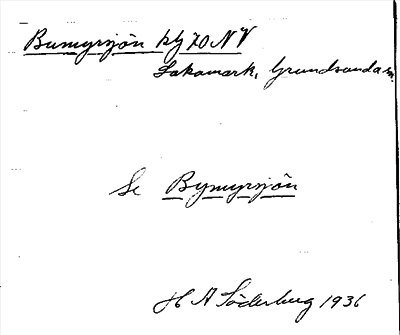 Bumyrsjön blj 70 NV
Lakamark, Grundsunda sn.
Se Bymyrsjön
H A Söderberg 1936